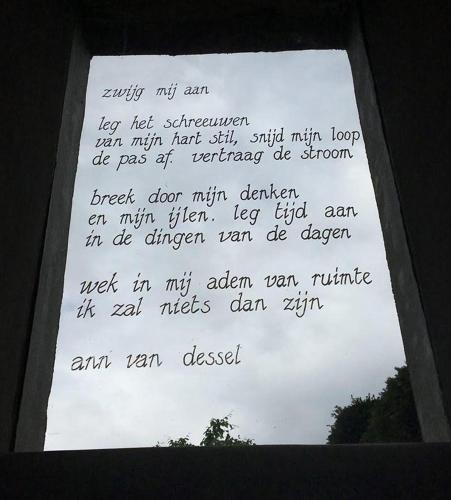 zwijg mij aan
leg het schreeuwen
van mijn hart stil, snijd mijn loop
de pas af. vertraag de stroom
breek door mijn denken
en mijn ijlen. leg tijd aan
in de dingen van de dagen
wek in mij adem van ruimte
ik zal niets dan zijn
ann van dessel